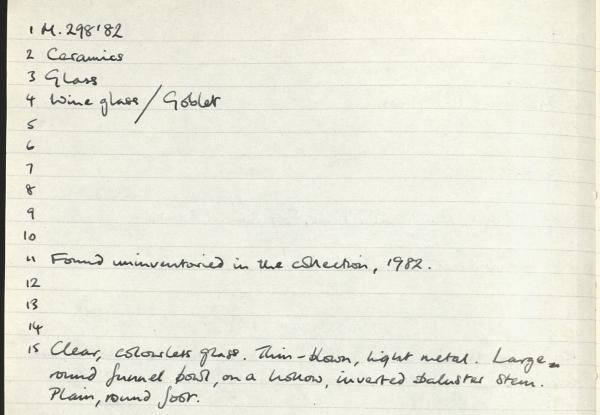 1 M.298'82
2 Ceramics
3 Glass
4 Wine glass / Goblet
5
6
7
8
9
10
11 Found uninventoried in the collection, 1982.
12
13
14
15 Clear, colourless glass. Thin-blown, light metal. Large
round funnel bowl, on a hollow, inverted baluster stem.
Plain, round foot.